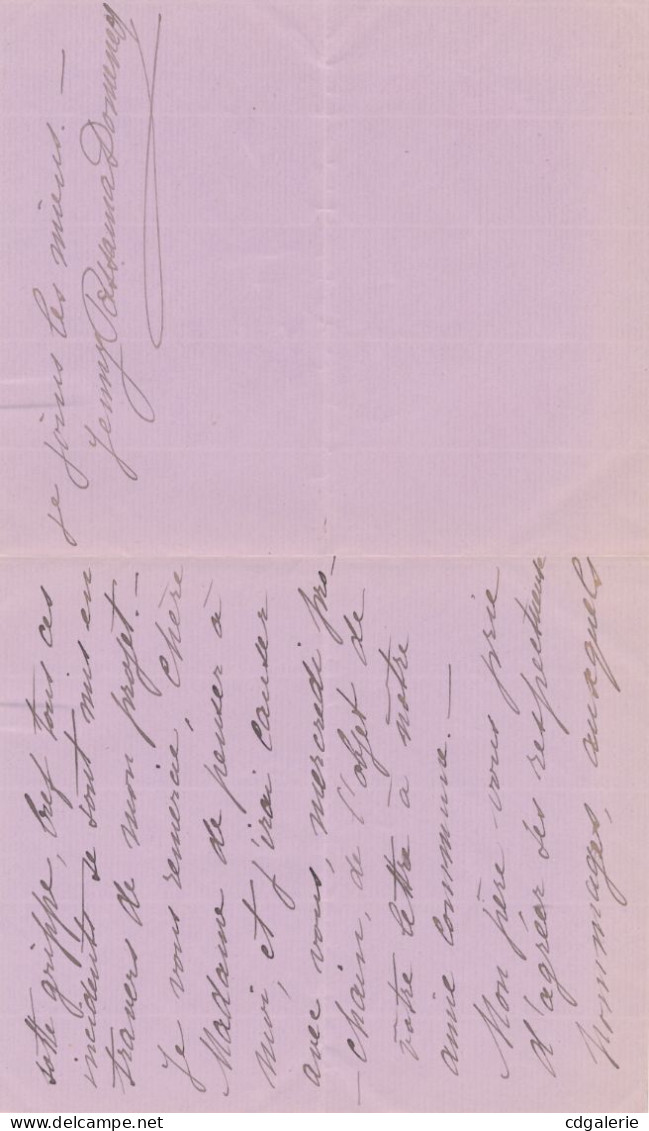 sotte grippe, bref tous ces
incidents se sont mis en
travers de mon projet.—
Je vous remercie, chère
Madame de penser à
moi, et j'irai causer
avec vous, mercredi pro-
-chain, de l'objet de
vôtre lettre à nôtre
amie commune.—
Mon père vous prie
d'agréer ses respectueux
hommages, auxquels
je joins les miens.—
Jenny
www.delcampe.net
cdgalerie